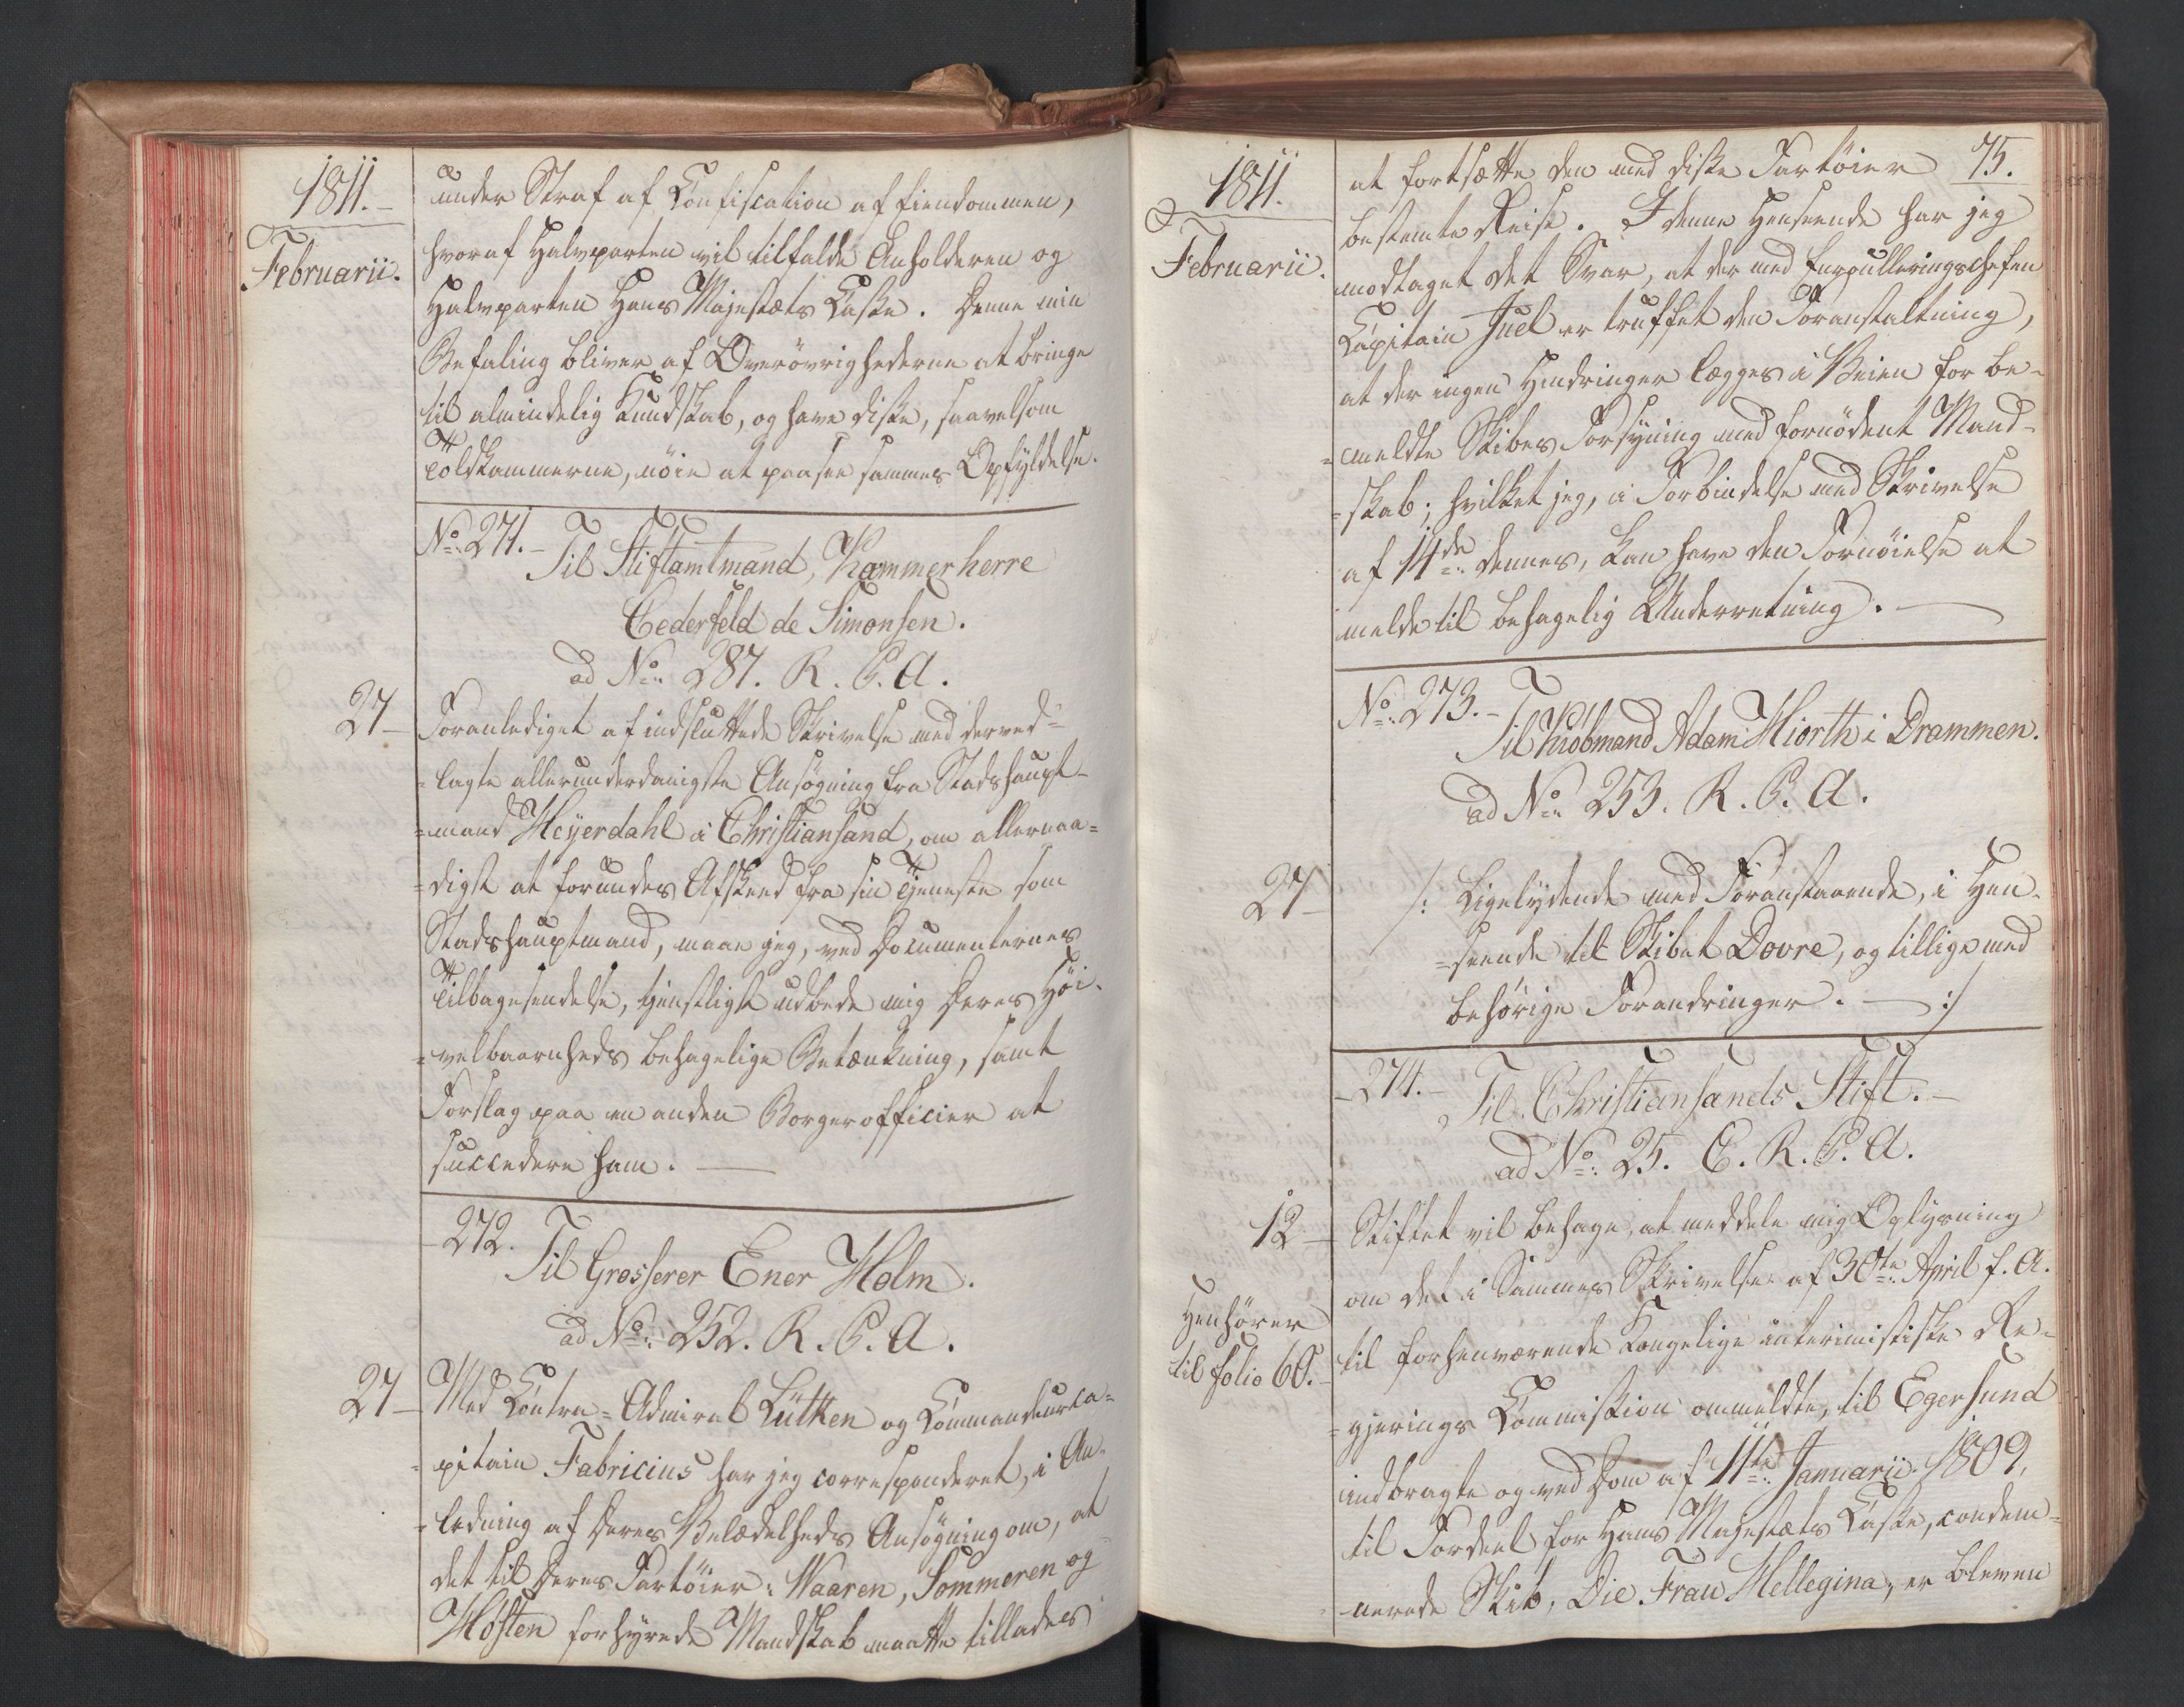 1811.
Februarii.
under Straf af Confiscation af Eiendommen,
hvoraf Halvparten vil tilfalde Anholderen og
Halvparten Hans Majestæts Casse. Denne min
Befaling bliver af Overøvrighederne at bringe
til almindelig Kundskab, og have disse, saavelsom
Toldkammerne, nøie at paasee sammes Opfyldelse.
No. 271. Til Stiftamtmand, Kammerherre
Cederfeld de Simonsen.
ad No. 287. R. P. A.
27 Foranlediget af indsluttede Skrivelse med derved
=lagte allerunderdanigste Ansøgning fra Stadshaupt-
=mand Heyerdahl i Christiansand, om allernaa=
=digst at forundes Afskeed fra sin Tjeneste som
Stadshauptmand, maae jeg, ved Documenternes
Tilbagesendelse, tjenstligst udbede mig Deres Høi-
=velbaarenheds behagelige Betænkning, samt
Forslag paa en anden Borgerofficier at
succedere ham.
272. Til Grosserer Ener Holm.
ad No. 252. R. P. A.
27 Med Contra=Admiral Lütken og Commandeurca=
=pitain Fabricius har jeg correspenderet, i An=
=ledning af Deres Velædelheds Ansøgning om, at
det til Deres Fartøier: Vaaren, Sommeren og
Høsten forhyrede Mandskab maatte tillades
75.
1811.
Februarii.
at fortsætte den med disse Fartøier
bestemte Reise. I denne Henseende har jeg
modtaget det Svar, at der med Enroulleringschefen
Capitain Juel er truffet den Foranstaltning,
at der ingen Hindringer lægges i Veien for be=
=meldte Skibes Forsyning med fornødent Mand-
=skab; hvilket jeg, i Forbindelse med Skrivelse
af 14de dennes, kan have den Fornøielse at
melde til behagelig Underretning.
No. 273. Til Kiøbmand Adam Hiorth i Drammen.
ad No. 253. R. P. A.
27 /: Ligelydende med Foranstaaende, i Hen-
=seende til Skibet Dovre, og tillige med
behørige Forandringer. :/
274. Til Christiansands Stift.
ad No. 25. C. R. P. A.
12 Stiftet vil behage, at meddele mig Oplysning
om det i Sammes Skrivelse af 30te April f. A.
Henhører
til folio 60.
til forhenværende Kongelige interimistiske Re=
=gjerings Commission ommeldte, til Egersund
indbragte og ved Dom af 11te Januarii 1809,
til Fordeel for Hans Majestæts Casse, condem=
nerede Skib, Die Frau Hellegina, er bleven